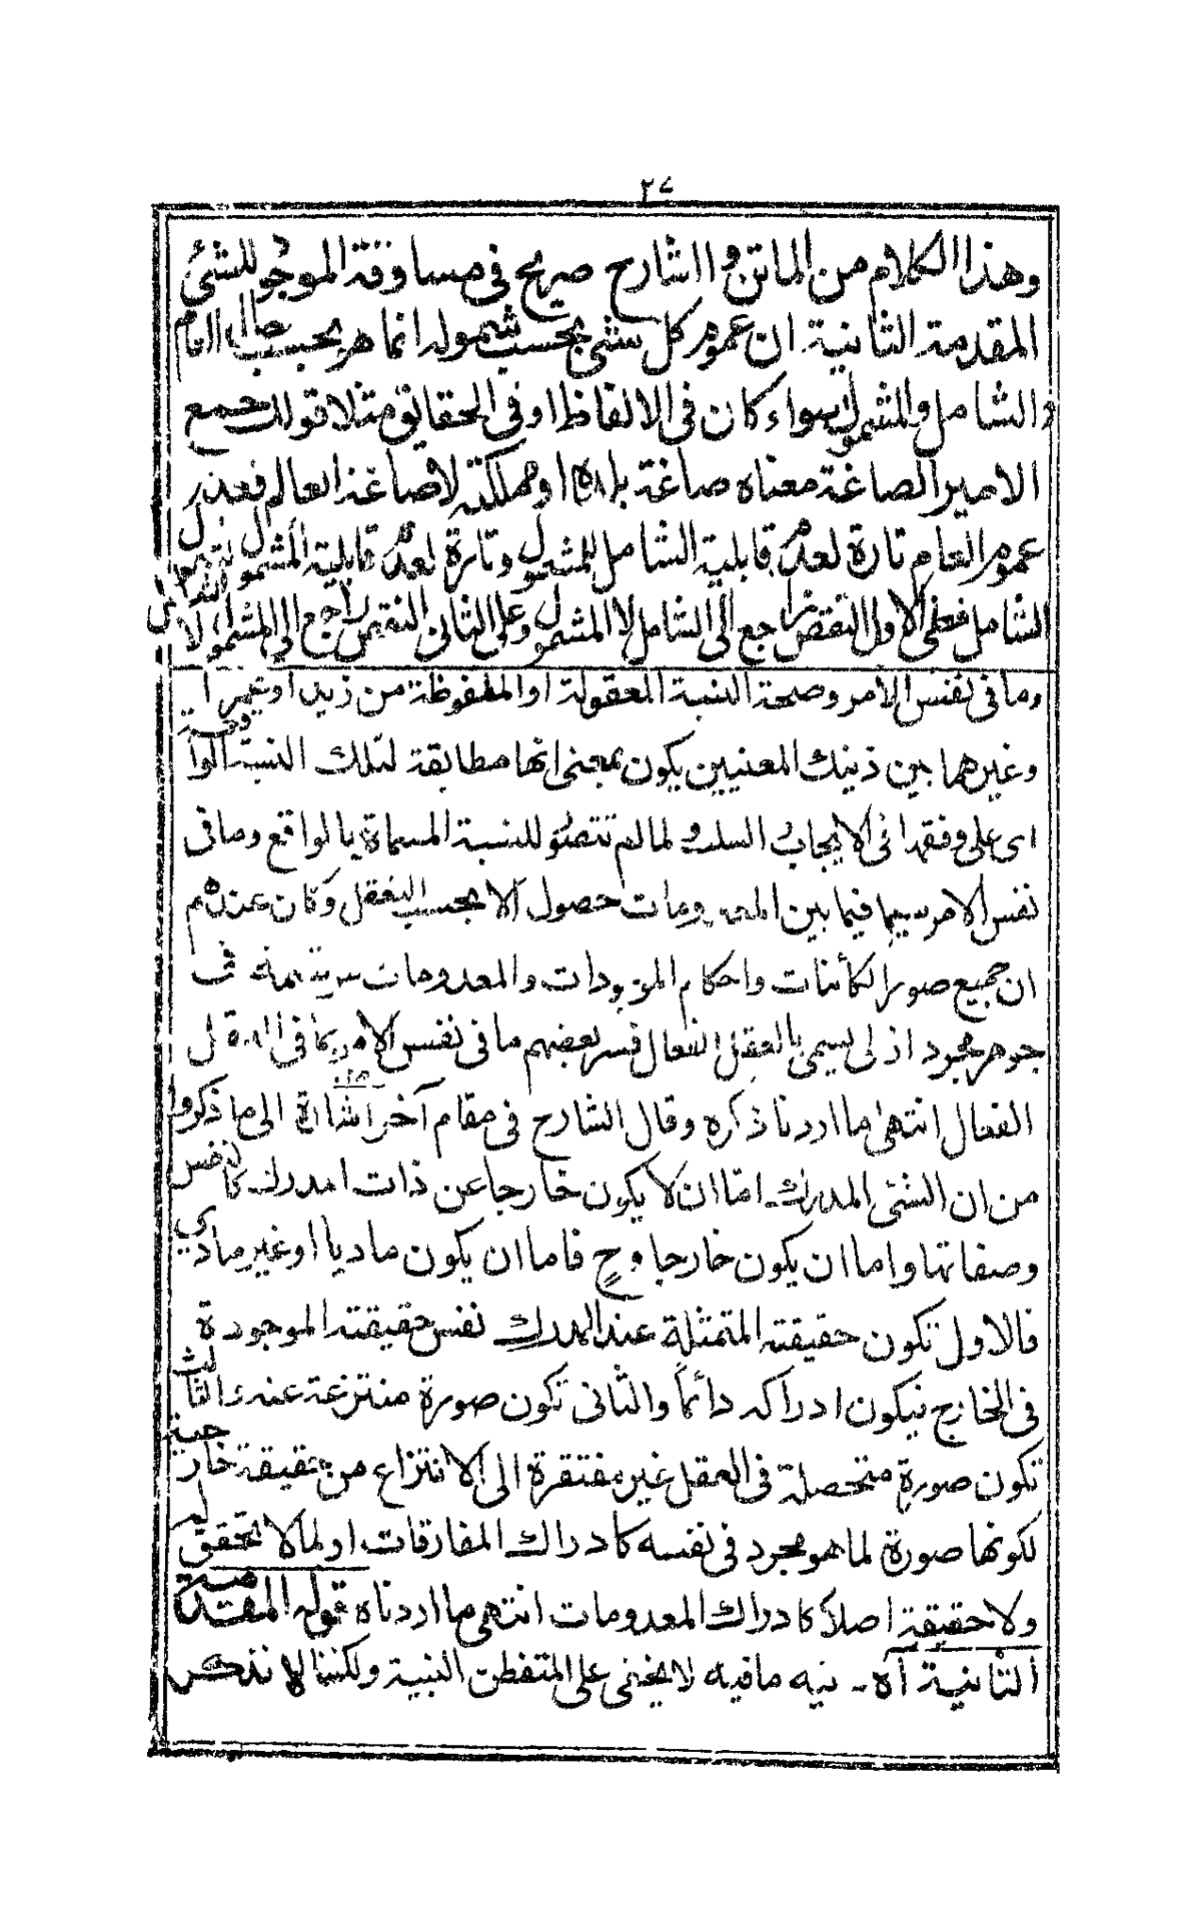 ٢٧
وهذا الكلام من الماتن والشارح صريح فى مساوقة الموجود للشئ
المقدمة الثانية ان عموم كل شئ بحسب شموله انما هو بحسب حال العام
والشامل والمشمول سواء كان فى الالفاظ او فى الحقائق مثلا قولك جمع
الامير الصاغة معناه صاغة بلده او مملكته لا صاغة العالم فعدم
عموم العام تارة لعدم قابلية الشامل للمشمول وتارة لعدم قابلية المشمول لشمول
الشامل فعلى الاول النقص راجع الى الشامل لا المشمول وعلى الثانى النقص راجع الى المشمول لا الشامل
وما فى نفس الامر وصحة النسبة المعقولة او الملفوظة من زيد او عمرا
وغيرهما بين ذينك المعنيين يكون بمعنى انها مطابقة لتلك النسبة الواقعة
اى على وفقها فى الايجاب والسلب و لما لم تتصور للنسبة المسماة بالواقع وما فى
نفس الامر سيما فيما بين المعدومات حصول الا بحسب التعقل وكان عندهم
ان جميع صور الكائنات واحكام الموجودات والمعدومات مرتسمة فى
جوهر مجرد ازلى يسمى بالعقل الفعال فسر بعضهم ما فى نفس الامر بما فى العقل
الفعال انتهى ما اردنا ذكره وقال الشارح فى مقام آخر اشارة الى ما ذكروا
من ان الشئ المدرك اما ان لا يكون خارجا عن ذات المدرك كالنفس
وصفاتها واما ان يكون خارجا وح فاما ان يكون ماديا او غير مادي
فالاول تكون حقيقته المتمثلة عند المدرك نفس حقيقته الموجودة
فى الخارج فيكون ادراكه دائما والثانى تكون صورة منتزعة عنه والثالث
تكون صورة متحصلة فى العقل غير مفتقرة الى الانتزاع من حقيقة خارجية
لكونها صورة لما هو مجرد فى نفسه كادراك المفارقات او لما لا تحقق له
ولا حقيقة اصلا كادراك المعدومات انتهى ما اردناه قوله المقدمة
الثانية آه ـ فيه ما فيه لا يخفى على المتفطن النبيه ولكننا لا نذكر